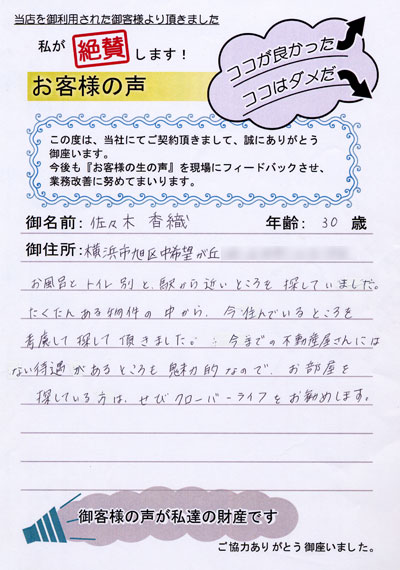 当店を御利用された御客様より頂きました
私が 絶賛 します！
お客様の声
ココが良かった
ココはダメだ
この度は、当社にてご契約頂きまして、誠にありがとう
御座います。
今後も『お客様の生の声』を現場にフィードバックさせ、
業務改善に努めてまいります。
御名前：佐々木 香織 年齢：30 歳
御住所：横浜市旭区中希望が丘
お風呂とトイレ別と、駅から近いところを探していました。
たくさんある物件の中から、今住んでいるところを
考慮して探して頂きました。今までの不動産屋さんには
ない待遇があるところも魅力的なので、お部屋を
探している方は、ぜひクローバーライフをお勧めします。
御客様の声が私達の財産です
ご協力ありがとう御座いました。